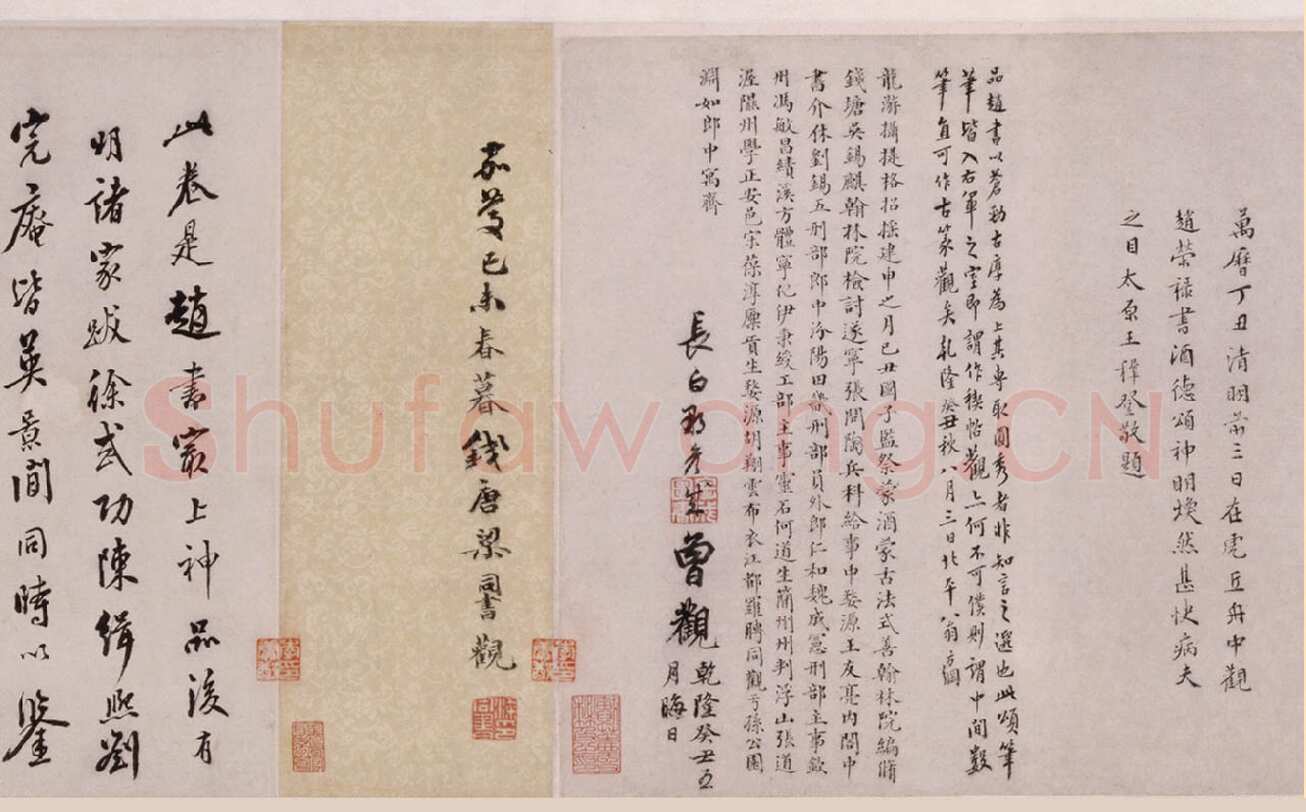 萬曆丁丑清明前三日在虎丘舟中觀
趙榮祿書酒德頌神明煥然甚快病夫
之目太原王穉登敬題
品趙書以蒼勁古厚為上其專取圓秀者非知言之選也此頌筆
筆皆入右軍之室即謂作稧帖觀亦何不可儻則謂中間數
筆直可作古篆觀矣乾隆癸丑秋八月三日北平翁方綱
龍游攝提格招搖建申之月己丑國子監祭酒蒙古法式善翰林院編脩
錢塘吳錫麒翰林院檢討遂寧張問陶兵科給事中婺源王友亮內閣中
書介休劉錫五刑部郎中汾陽田畿刑部員外郎仁和魏成憲刑部主事歙
州馮敏昌績溪方體寧化伊秉綬工部主事靈石何道生蘭州州判浮山張道
渥隰州學正安邑宋葆淳廩貢生婺源胡翔雲布衣江都羅聘同觀于孫公園
淵如郎中寓齋
長白 曾觀
乾隆癸丑五
月晦日
嘉慶己未春暮錢唐梁同書觀
此卷是趙書最上神品後有
明諸家跋徐武功陳緝熙劉
完庵皆英景間同時以鑒
Shufawang.CN